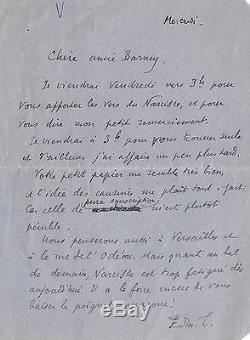 V
Mercredi.
Chère amie Barney,
Je viendrai Vendredi vers 3h pour
vous apporter les vers du Narcisse, et pour
vous dire mon petit remerciement.
Je viendrai à 3h pour vous trouver seule
et d'ailleurs j'ai affaire un peu plus tard.
Votre petit papier me semble très bien,
et l'idée des causeries me plaît tout à fait
car celle de pure souscription m'est plutôt
pénible.
Nous penserons aussi à Versailles et
à la rue de l'Odéon. Mais quant au bal
de demain, Narcisse est trop fatigué dès
aujourd'hui. Il a la force encore de vous
baiser le poignet